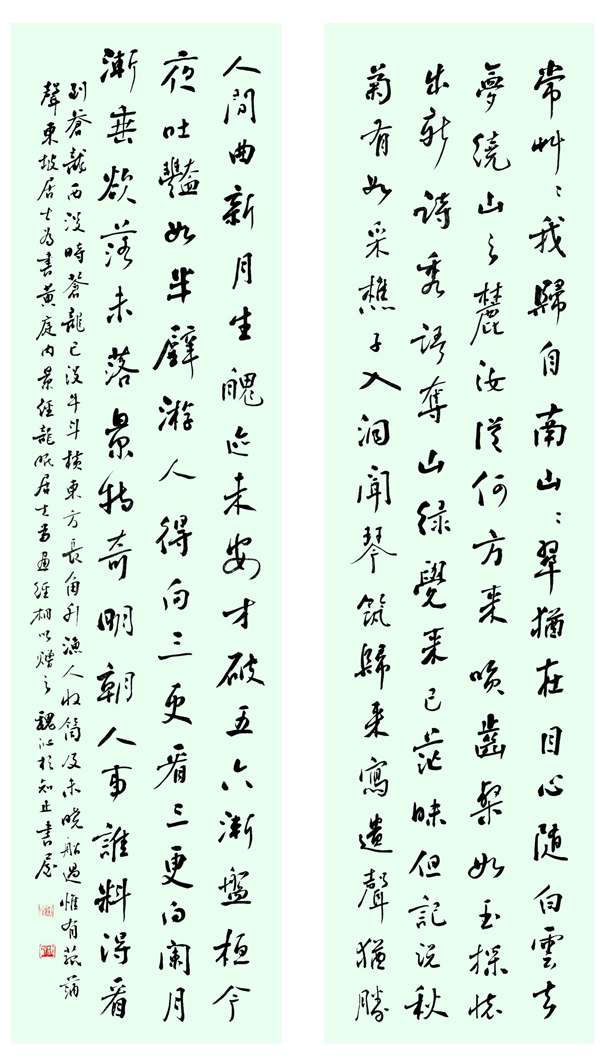 常艸〻我歸自南山〻翠猶在目心隨白雲去
夢繞山之麓汝從何方來咲齒粲如玉探懷
出新詩秀語奪山綠覺來已茫昧但記說秋
菊有如采樵子入洞聞琴筑歸來寫遺聲猶勝
人間曲新月生魄迹未安才破五六漸盤桓今
夜吐豔如半璧游人得向三更看三更向闌月
漸垂欲落未落景特奇明朝人事誰料得看
到蒼龍西沒時蒼龍已沒牛斗橫東方長角升漁人收筒及未曉船過惟有菰蒲
聲東坡居士為書黃庭內景經龍眠居士為畫經相以贈之 魏 於知止書屋